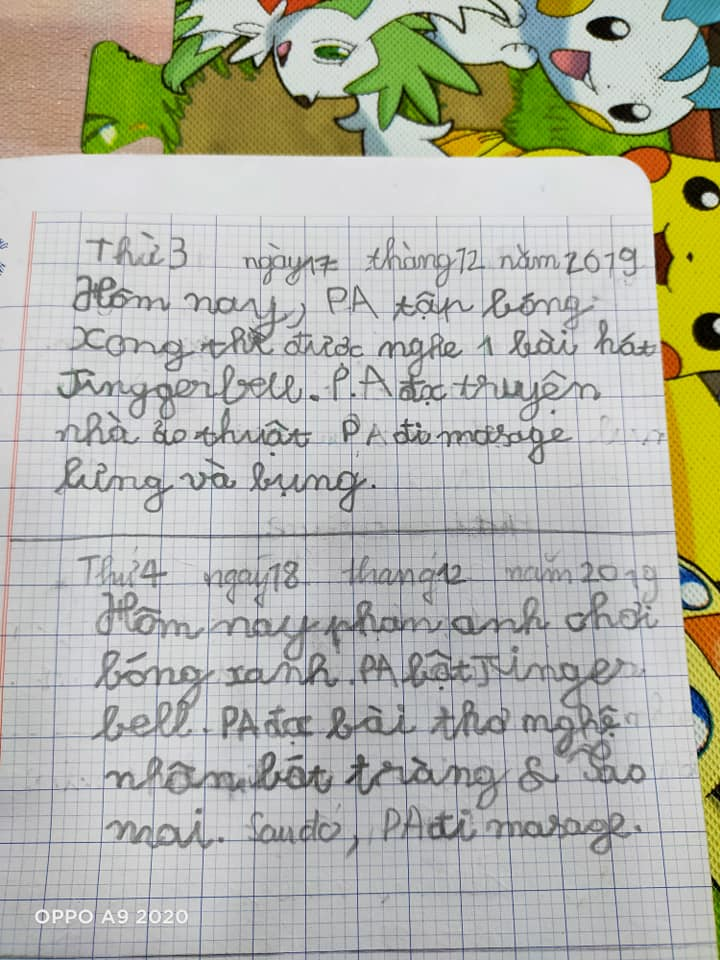 Thứ 3 ngày 17 tháng 12 năm 2019
Hôm nay, PA tập bóng
xong thì được nghe 1 bài hát
Jinggerbell. P.A đọc truyện
nhà ảo thuật PA đi masage
lưng và bụng.
Thứ 4 ngay 18 thang 12 năm 2019
Hôm nay phan anh chơi
bóng xanh. PA bật Jinger
bell. PA đọc bài thơ nghệ
nhân bát tràng & Sao
mai. Saudó, PA đi masage.
OPPO A9 2020